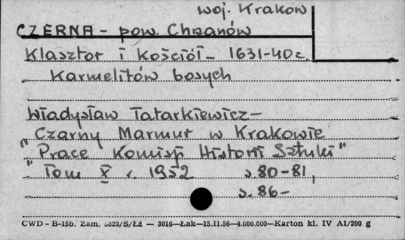 woj. Krakow
CZERNA - pow. Chrzanów
Klasztor i kościół - 1631-40 r.
Karmelitów bosych
Władysław Tatarkiewicz -
"Czarny Marmur w Krakowie
"Prace Komisji Historii Sztuki"
Tom X r. 1952 s. 80-81,
s. 86-
CWD - B-15b. Zam. 5623/S/Łż — 3016—Łak—15.11.56—4.000.000—Karton kl. IV A1/200 g